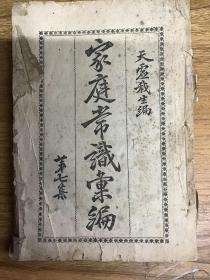 天虚我生編
家庭常識彙編
第七集